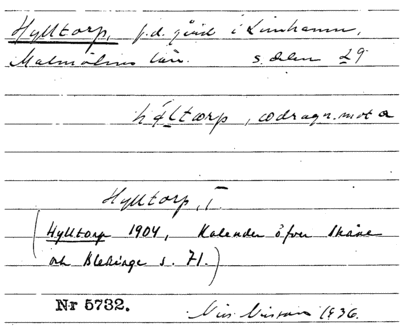 Hylltorp, f.d. gård i Limhamn,
Malmöhus län. s. delen 29
hýltorp, ω dragn. mot a
Hylltorp, I.
(Hylltorp 1904, Kalender öfver Skåne
och Blekinge s. 71.)
Nr 5732. Nils Nilsson 1936.